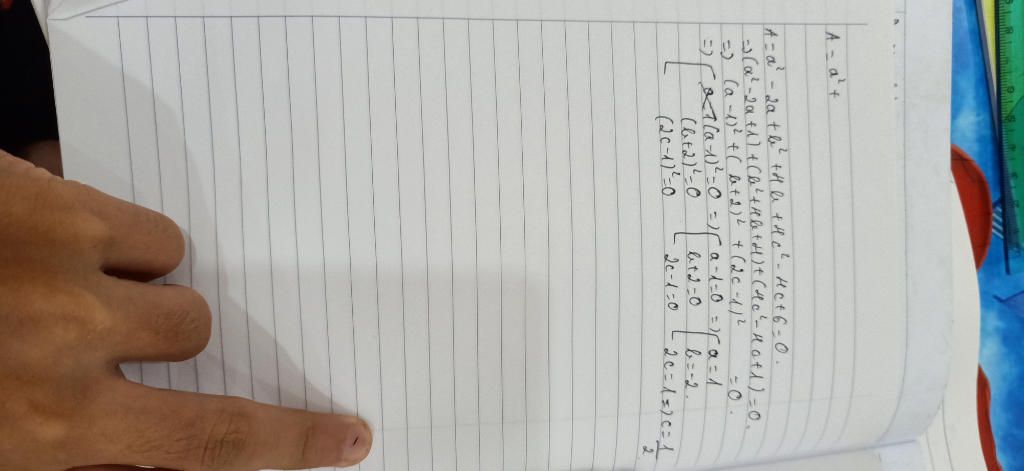 A = a² +
A = a² - 2a + b² + 4b + 4c² - 4c + 6 = 0.
=> (a² - 2a + 1) + (b² + 4b + 4) + (4c² - 4c + 1) = 0.
=> (a - 1)² + (b + 2)² + (2c - 1)² = 0.
=> [ (a - 1)² = 0 => [ a - 1 = 0 => [ a = 1
(b + 2)² = 0 [ b + 2 = 0 [ b = -2.
[ (2c - 1)² = 0 [ 2c - 1 = 0 [ 2c = 1 => c = 1/2